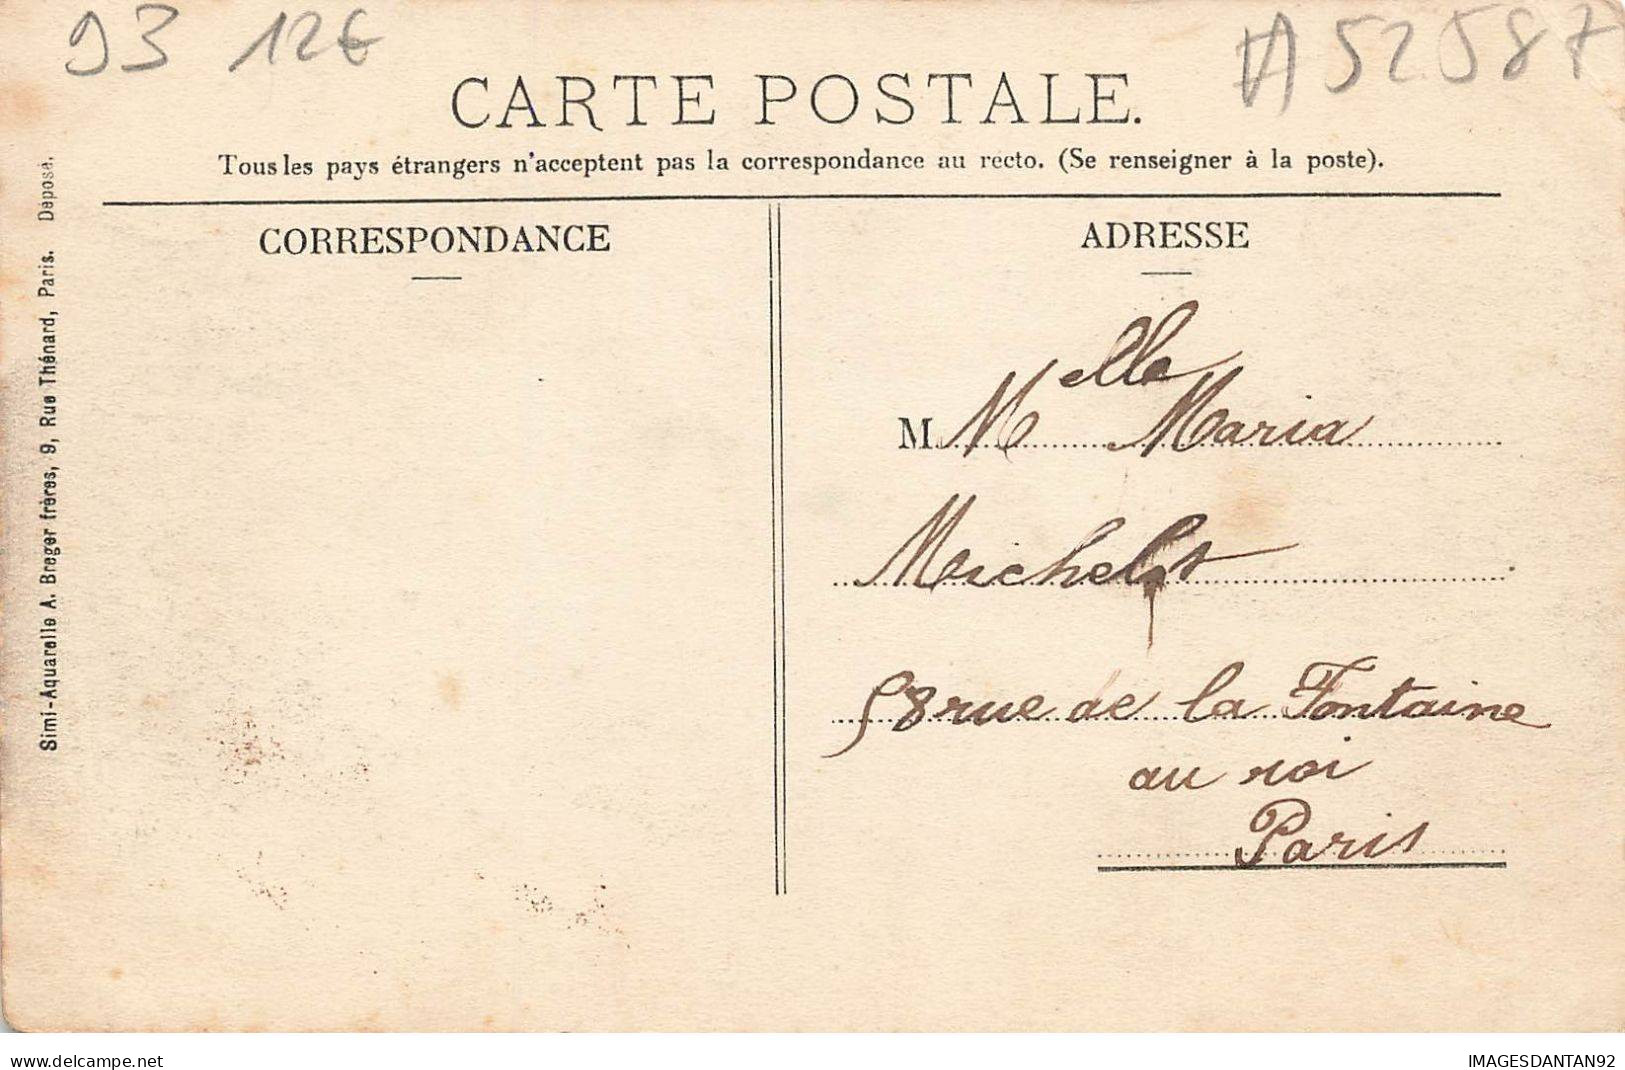 93 12€ A52587
CARTE POSTALE.
Tous les pays étrangers n'acceptent pas la correspondance au recto. (Se renseigner à la poste).
CORRESPONDANCE
ADRESSE
M Melle Maria
Michelet
58 rue de la Fontaine
au roi
Paris
Simi-Aquarelle A. Breger frères, 9, Rue Thénard, Paris. Déposé.
www.delcampe.net
IMAGESDANTAN92